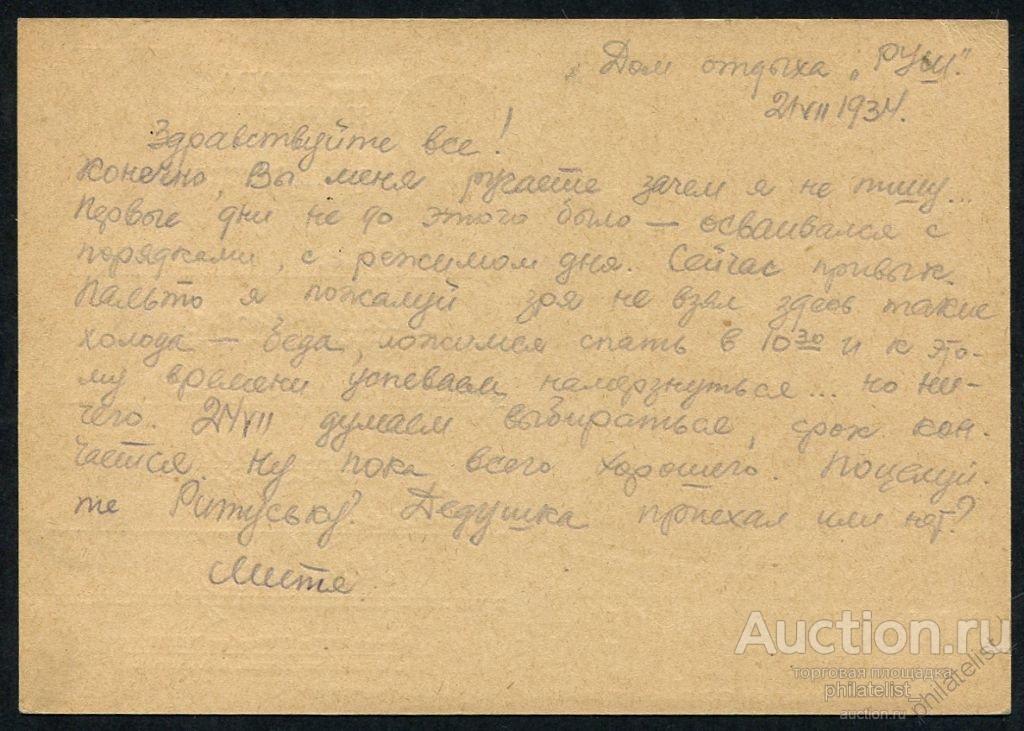 Дом отдыха „РУШ."
21 VII 1934.
Здравствуйте все!
Конечно, Вы меня ругаете зачем я не пишу...
Первые дни не до этого было — осваивался с
порядками, с режимом дня. Сейчас привык.
Пальто я пожалуй зря не взял здесь такие
холода — беда, ложимся спать в 10 30 и к это-
му времени успеваем намерзнуться... но ни-
чего. 24 VII думаем выбираться, срок кон-
чается. Ну пока всего хорошего. Поцелуй-
те Ритуську. Дедушка приехал или нет?
Митя.
Auction.ru
торговая площадка
philatelist_
auction.ru
philatelist_